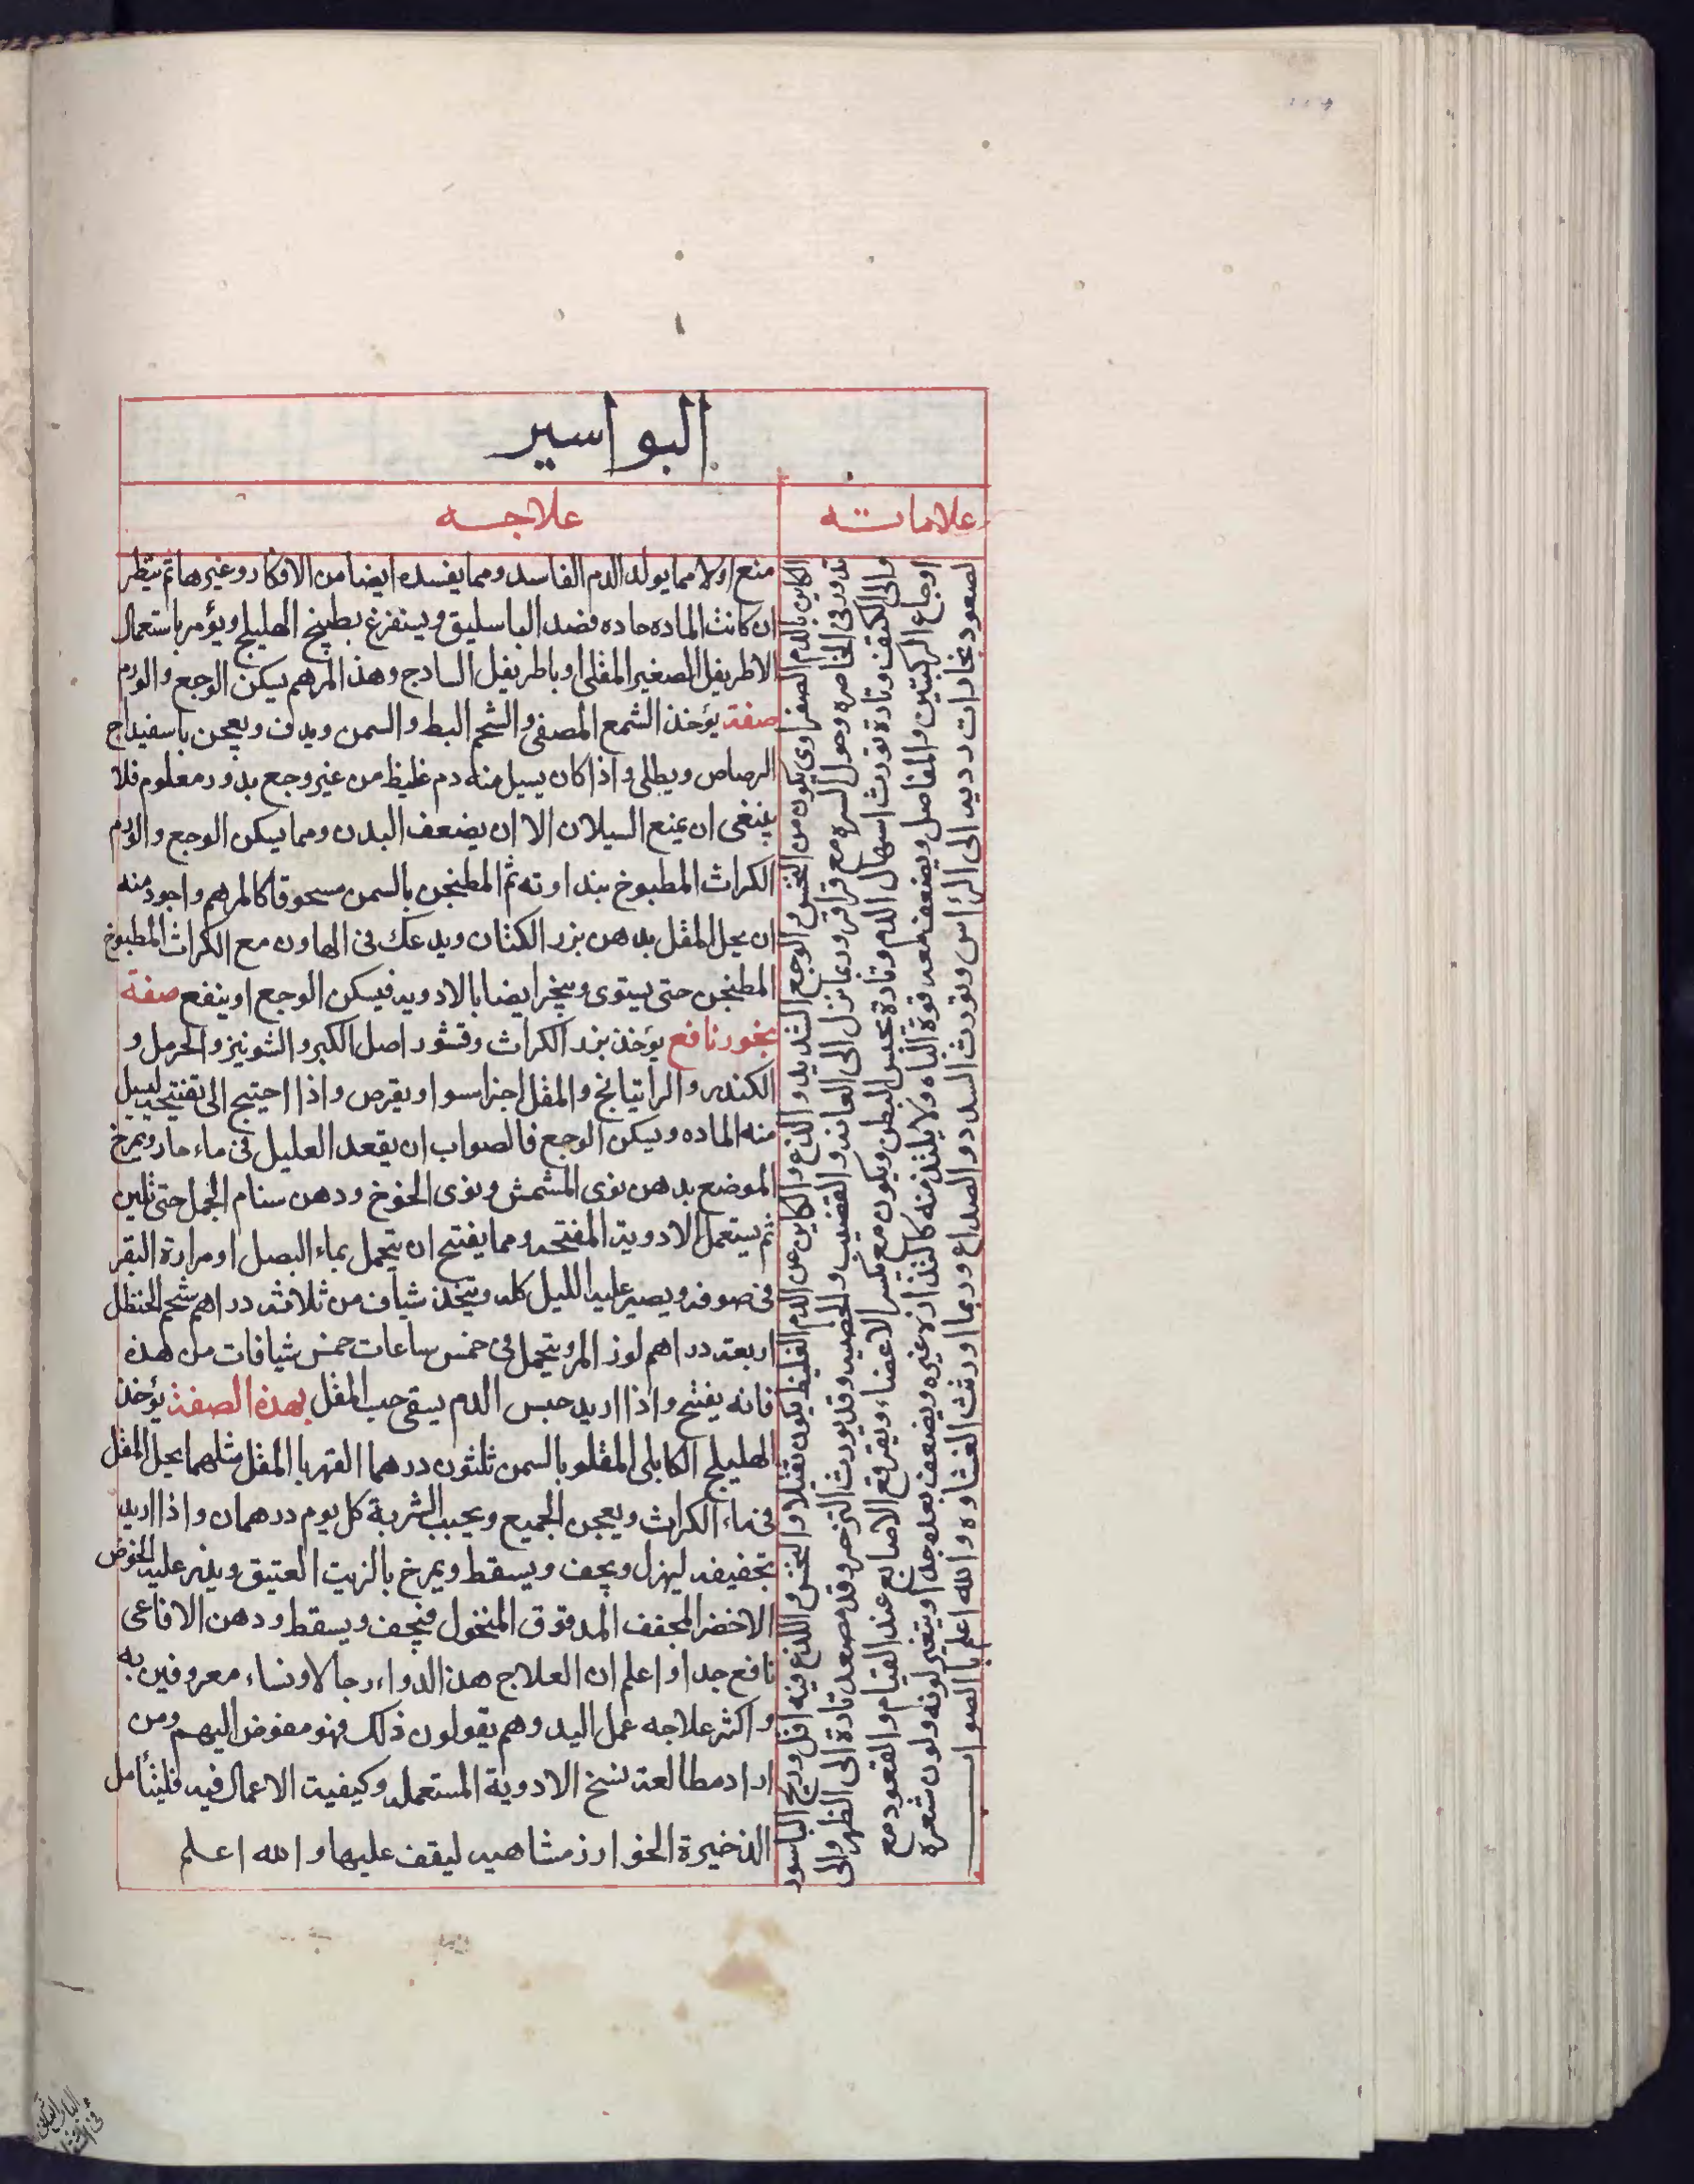 البواسير
علاماته
علاجه
الكاين بالدم الصفراوى يكون من النخس والوجع الشديد واللذع والكاين عن الدم الغليظ يكون ثقيلا والنخس واللذع فيه اقل وريح الباسور
تدور فى الخاصره وحول السره مع قراقر وربما نزل الى العانه والقضيب والخصيه وقد يورث التزحر وقد تصعد تارة الى الظهر والى
والى الكتف وتارة تورث اسهال الدم وتارة تحبس البطن ويكون مع تكسر الاعضاء ويقرقع الاصابع عند القيام والقعود مع
اوجاع الركبتين والمفاصل ويضعف معه قوة الباه ولا يلتذ منه كالتذاذ غيره ويضعف بعده جدا ويتغير لونه ولون شعره
لصعود بخارات رديه الى الرأس وتورث السدد والصداع وربما اورثت الغشاوه والله اعلم بالصواب
منع اولا مما يولد الدم الفاسد ومما يفسده ايضا من الافكار وغيرها ثم ينظر
ان كانت الماده حاده فصد الباسليق ويستفرغ بطبيخ الهليلج ويؤمر باستعمال
الاطريفل الصغير المقلى او باطريفل السادج وهذ المرهم يسكن الوجع والورم
صفة يؤخذ الشمع المصفى والشحم البط والسمن ويدف ويعجن باسفيداج
الرصاص ويطلى واذا كان يسيل منه دم غليظ من غير وجع بدور معلوم فلا
ينبغى ان يمنع السيلان الا ان يضعف البدن ومما يسكن الوجع والورم
الكراث المطبوخ بنداوته ثم المطنجن بالسمن مسحوقا كالمرهم واجود منه
ان يحل المقل بدهن بزر الكتان ويدعك فى الهاون مع الكراث المطبوخ
المطنجن حتى يستوى ويبخر ايضا بالادويه فيسكن الوجع او ينفع صفة
بخور نافع يؤخذ بزر الكراث وقشور اصل الكبر والشونيز والحرمل و
الكندر والراتيانج والمقل اجزا سوا ويقرص واذا احتيج الى تفتيحه ليسيل
منه الماده ويسكن الوجع فالصواب ان يقعد العليل فى ماء حار ويمرخ
الموضع بدهن نوى المشمش ونوى الخوخ ودهن سنام الجمل حتى تلين
ثم يستعمل الادوية المفتحه ومما يفتح ان يتحمل بماء البصل او مرارة البقر
فى صوفه ويصير عليه الليل كله ويتخذ شياف من ثلاثه دراهم شحم الحنظل
اربعة دراهم لوز المر ويتحمل فى خمس ساعات خمس شيافات من هذه
فانه يفتح واذا اريد حبس الدم يسقى حب المقل بهذه الصفة يؤخذ
الهليلج الكابلى المقلو بالسمن ثلثون درهما القهربا المقل مثلهما يحل المقل
فى ماء الكراث ويعجن الجميع ويحبب الشربة كل يوم درهمان واذا اريد
تجفيفه ليهزل ويجف ويسقط ويمرخ بالزيت العتيق وينثر عليه الخوص
الاخضر المجفف المدقوق المنخول فيجف ويسقط ودهن الافاعى
نافع جدا واعلم ان العلاج هذ الدواء رجالا ونساء معروفين به
واكثر علاجه عمل اليد وهم يقولون ذلك فهو مفوض اليهم ومن
اراد مطالعة نسخ الادوية المستعمله وكيفيت الاعمال فيه فليتأمل
الذخيرة الخوارزمشاهيه ليقف عليها والله اعلم